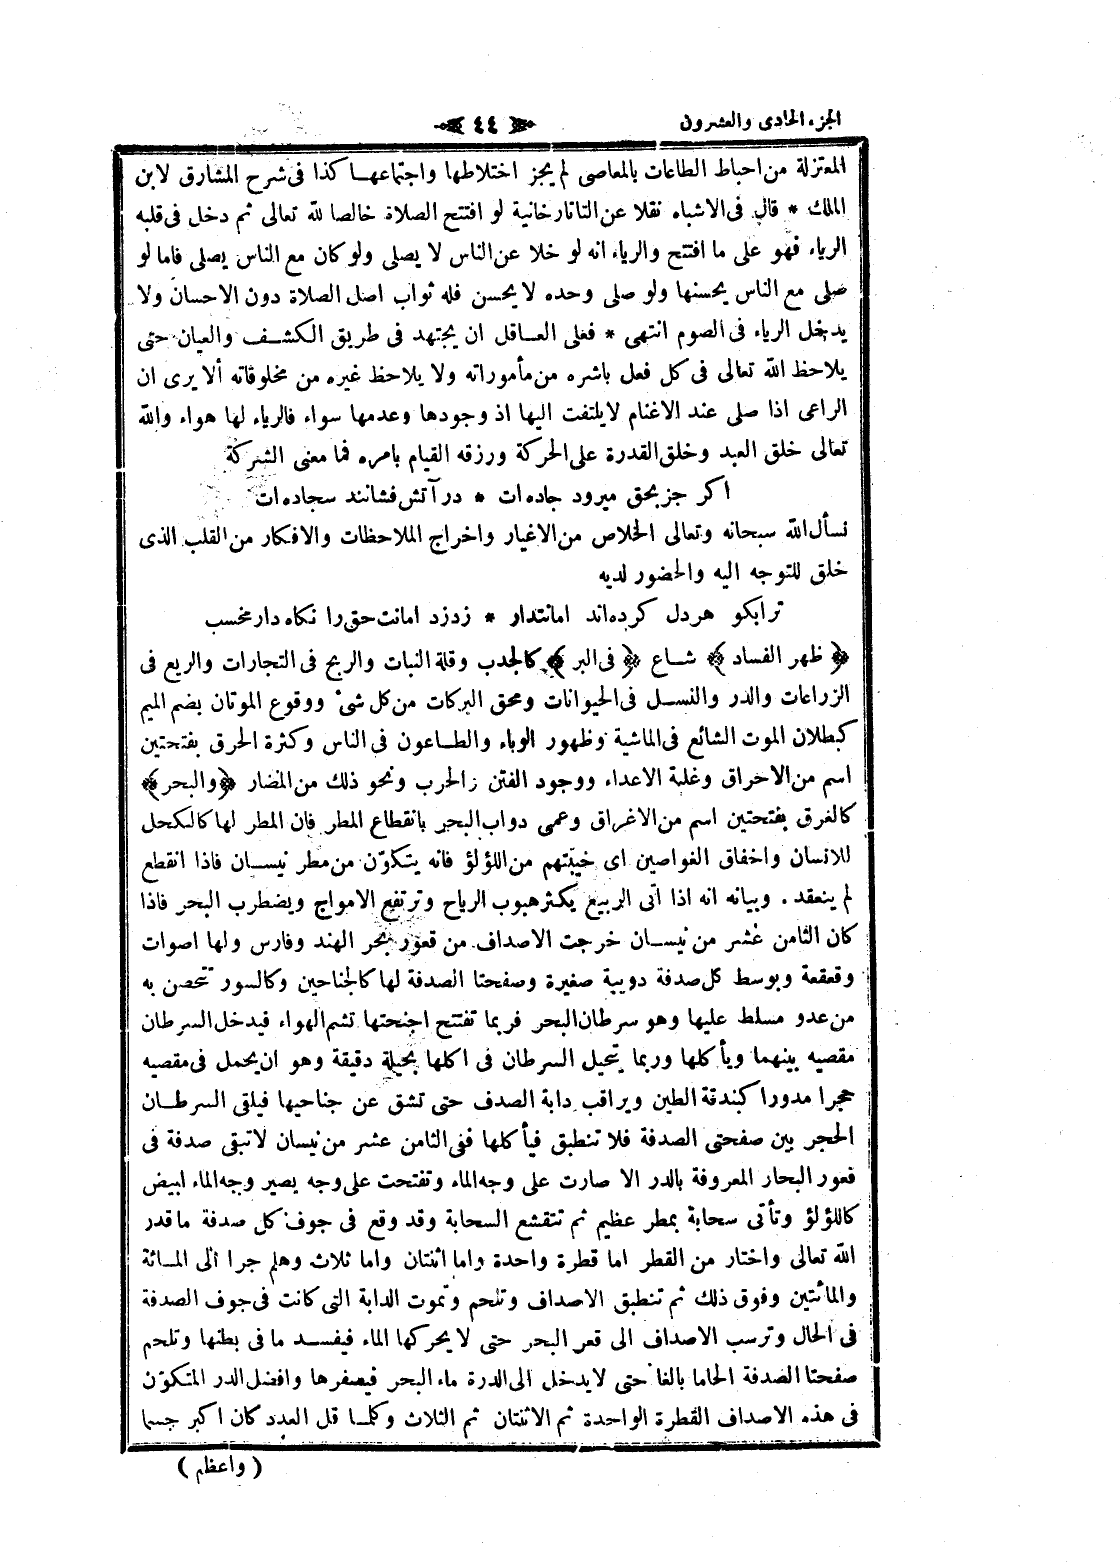 الجزء الحادى والعشرون
٤٤
المعتزلة من احباط الطاعات بالمعاصى لم يجز اختلاطها واجتماعهـا كذا فى شرح المشارق لابن
الملك * قال فى الاشباه نقلا عن التاتارخانية لو افتتح الصلاة خالصا لله تعالى ثم دخل فى قلبه
الرياء فهو على ما افتتح والرياء انه لو خلا عن الناس لا يصلى ولو كان مع الناس يصلى فاما لو
صلى مع الناس يحسنها ولو صلى وحده لا يحسن فله ثواب اصل الصلاة دون الاحسان ولا
يدخل الرياء فى الصوم انتهى * فعلى العـاقل ان يجتهد فى طريق الكشـف والعيان حتى
يلاحظ الله تعالى فى كل فعل باشره من مأموراته ولا يلاحظ غيره من مخلوقاته ألا يرى ان
الراعى اذا صلى عند الاغنام لا يلتفت اليها اذ وجودها وعدمها سواء فالرياء لها هواء والله
تعالى خلق العبد وخلق القدرة على الحركة ورزقه القيام بامره فما معنى الشركة
اكر جز بحق ميرود جاده ات * در آتش فشانند سجاده ات
نسأل الله سبحانه وتعالى الخلاص من الاغيار واخراج الملاحظات والافكار من القلب الذى
خلق للتوجه اليه والحضور لديه
ترا بكو هر دل كرده اند امانتدار * ز دزد امانت حق را نكاه دار مخسب
﴿ ظهر الفساد ﴾ شـاع ﴿ فى البر ﴾ كالجدب وقلة النبات والربح فى التجارات والريع فى
الزراعات والدر والنسـل فى الحيوانات ومحق البركات من كل شئ ووقوع الموتان بضم الميم
كبطلان الموت الشائع فى الماشية وظهور الوباء والطـاعون فى الناس وكثرة الحرق بفتحتين
اسم من الاحراق وغلبة الاعداء ووجود الفتن والحرب ونحو ذلك من المضار ﴿ والبحر ﴾
كالغرق بفتحتين اسم من الاغراق وعمى دواب البحر بانقطاع المطر فان المطر لها كالكحل
للانسان واخفاق الغواصين اى خيبتهم من اللؤلؤ فانه يتكوّن من مطر نيسـان فاذا انقطع
لم ينعقد . وبيانه انه اذا اتى الربيع يكثر هبوب الرياح وترتفع الامواج ويضطرب البحر فاذا
كان الثامن عشر من نيسـان خرجت الاصداف من قعور بحر الهند وفارس ولها اصوات
وقعقعة وبوسط كل صدفة دويبة صغيرة وصفحتا الصدفة لها كالجناحين وكالسور تتحصن به
من عدو مسلط عليها وهو سرطان البحر فربما تفتتح اجنحتها تشم الهواء فيدخل السرطان
مقصيه بينهما ويأكلها وربما يتحيل السرطان فى اكلها بحيلة دقيقة وهو ان يحمل فى مقصيه
حجرا مدورا كبندقة الطين ويراقب دابة الصدف حتى تشق عن جناحيها فيلقى السرطـان
الحجر بين صفحتى الصدفة فلا تنطبق فيأكلها ففى الثامن عشر من نيسان لا تبقى صدفة فى
قعور البحار المعروفة بالدر الا صارت على وجه الماء وتفتحت على وجه يصير وجه الماء ابيض
كاللؤلؤ وتأتى سحابة بمطر عظيم ثم تتقشع السحابة وقد وقع فى جوف كل صدفة ما قدر
الله تعالى واختار من القطر اما قطرة واحدة واما اثنتان واما ثلاث وهلم جرا الى المـائة
والمائتين وفوق ذلك ثم تنطبق الاصداف وتلحم وتموت الدابة التى كانت فى جوف الصدفة
فى الحال وترسب الاصداف الى قعر البحر حتى لا يحركها الماء فيفسد ما فى بطنها وتلحم
صفحتا الصدفة الحاما بالغا حتى لا يدخل الى الدرة ماء البحر فيصفرها وافضل الدر المتكوّن
فى هذه الاصداف القطرة الواحدة ثم الاثنتان ثم الثلاث وكلمـا قل العدد كان اكبر جسما
( واعظم )